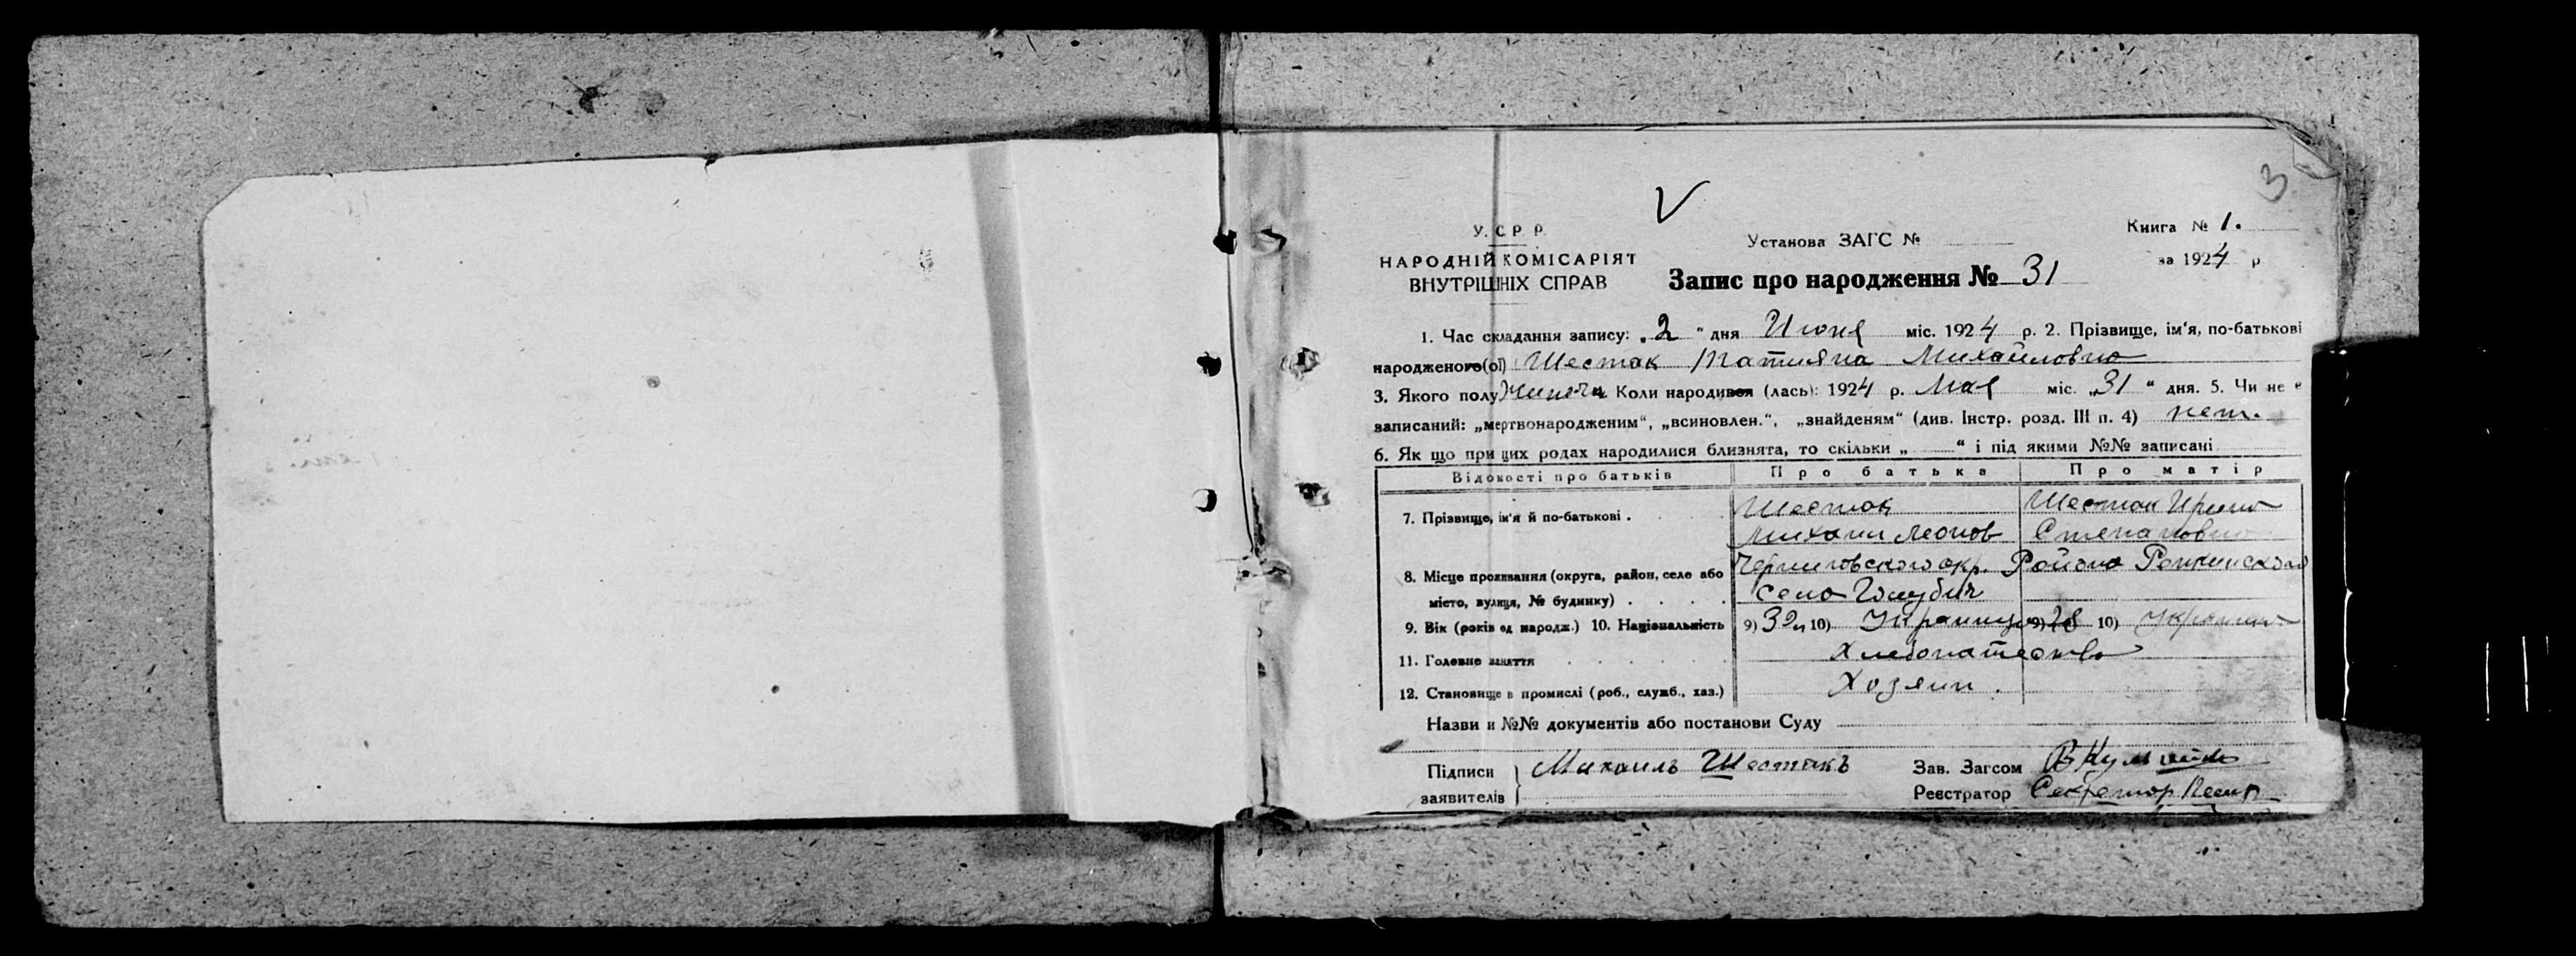 3
V
У. С. Р. Р.
НАРОДНІЙ КОМІСАРІЯТ
ВНУТРІШНІХ СПРАВ
Установа ЗАГС №
Книга № 1.
за 1924 р
Запис про народження № 31
1. Час складання запису: „2“ дня Июня міс. 1924 р. 2. Прізвище, ім‘я, по-батькові
народженого(ої) Шестак Татияна Михайловна
3. Якого полу Жиноча Коли народився (лась): 1924 р. Мая міс. „31“ дня. 5. Чи не є
записаний: „мертвонародженим“, „всиновлен.“, „знайденям“ (див. Інстр. розд. III п. 4) нет.
6. Як що при цих родах народилися близнята, то скільки „ “ і під якими №№ записані
Відомості про батьків Про батька Про матір
7. Прізвище, ім‘я й по-батькові . Шестак Шестак Ирина
Михаил Леонов Степановна
8. Місце проживання (округа, район, село або Черниговского окр. Района Репкинского
місто, вулиця, № будинку) . Село Голубич
9. Вік (років од народж.) 10. Національність 9) 32 л 10) Украинцы 9) 28 10)
11. Головне заняття Хлебопашество
12. Становище в промислі (роб., служб., хаз.) Хозяин.
Назви и №№ документів або постанови Суду
Підписи Михаилъ Шестакъ Зав. Загсом
заявителів Реєстратор Секретар